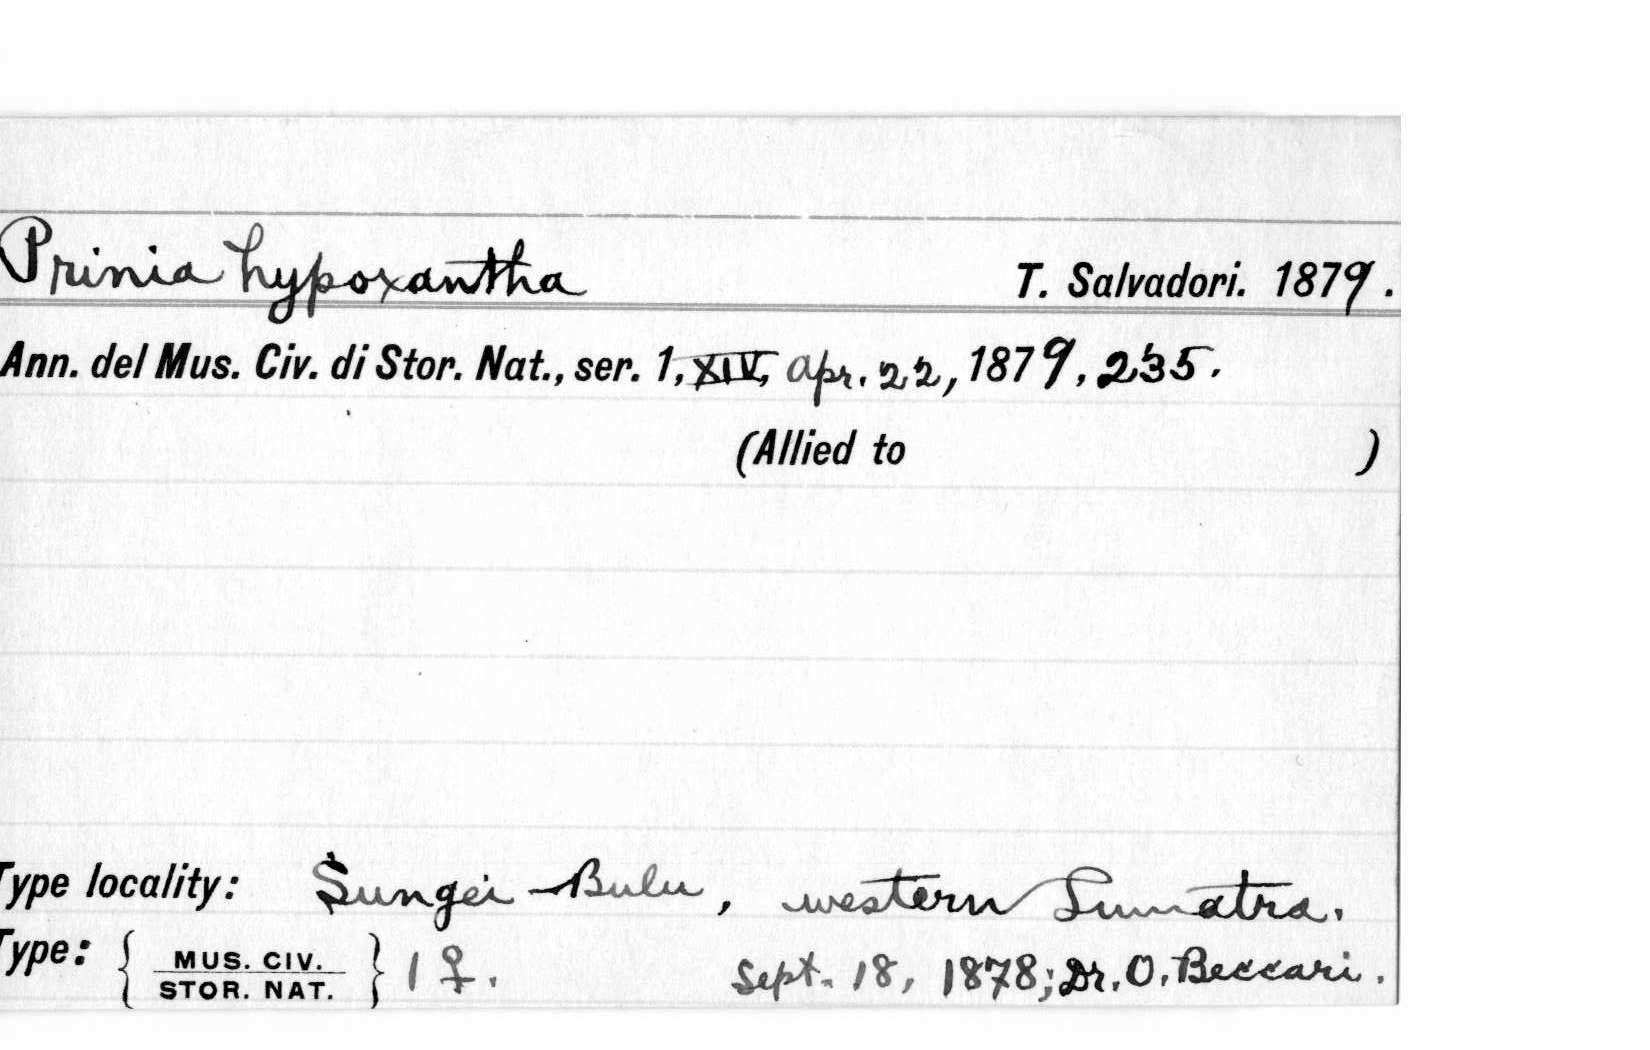 Prinia hypoxantha T. Salvadori. 1879.
Ann. del Mus. Civ. di Stor. Nat., ser. 1, XIV, Apr. 22, 1879, 235.
(Allied to )
Type locality: Sungei-Bulu, western Sumatra.
Type: { MUS. CIV. STOR. NAT. } 1 ♀. Sept. 18, 1878; Dr. O. Beccari.